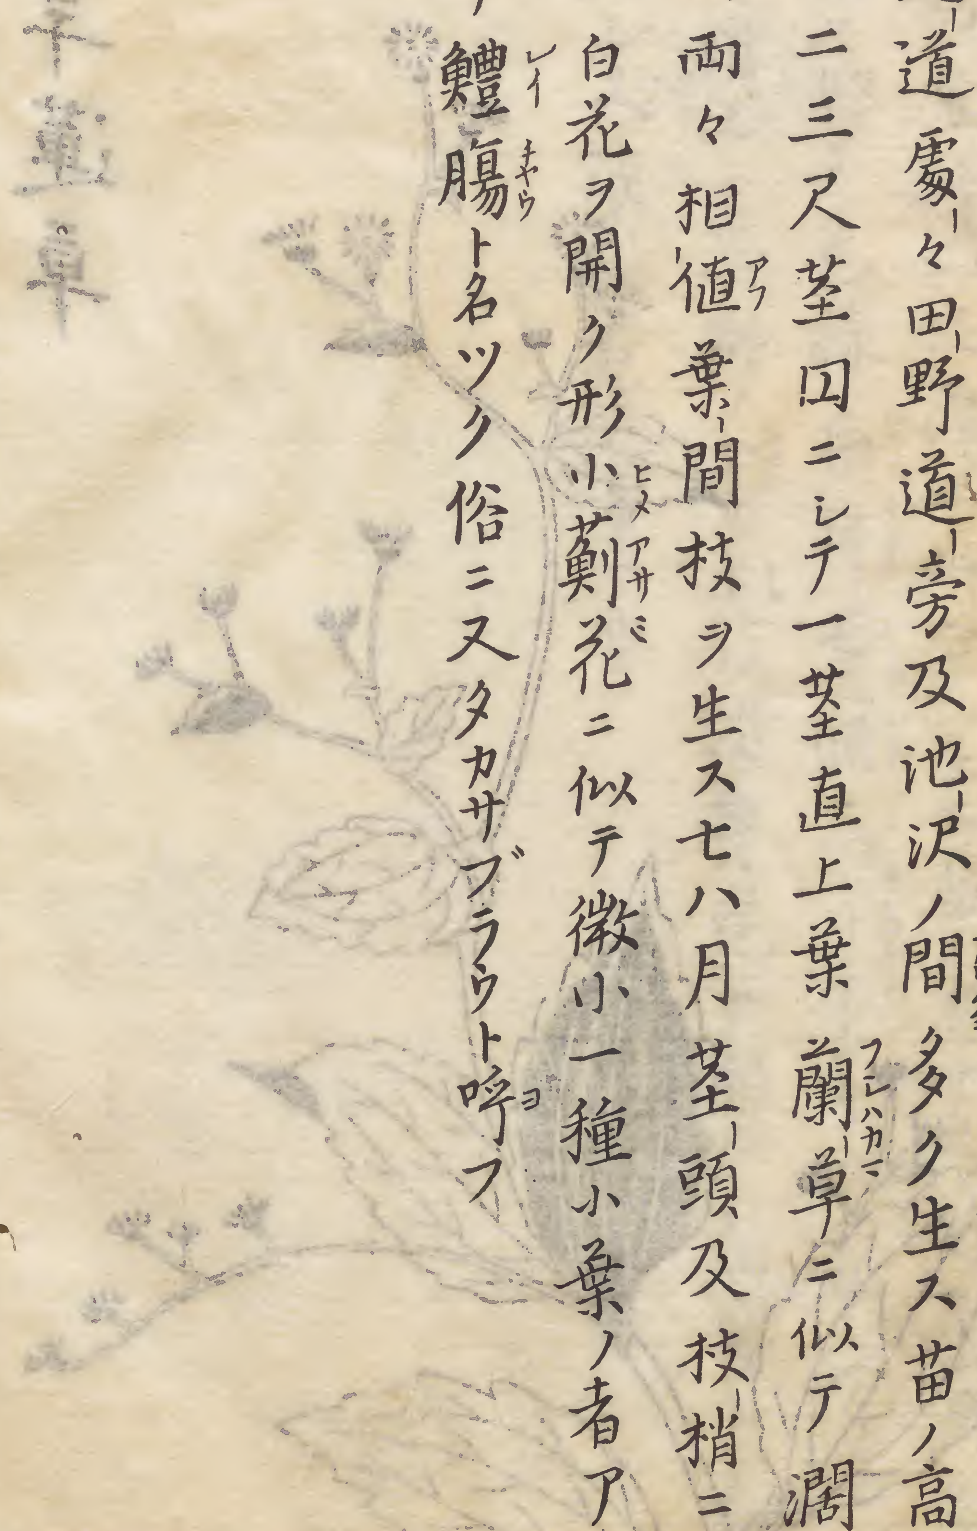 道處々田野道旁及池沢ノ間多ク生ス苗ノ高
二三尺茎円ニシテ一茎直上葉蘭草ニ似テ濶
フシハカマ
両々相値葉間枝ヲ生ス七八月茎頭及枝梢ニ
アフ
白花ヲ開ク形小薊花ニ似テ微小一種小葉ノ者ア
ヒメアサミ
鱧腸ト名ツク俗ニ又タカサブラウト呼フ
レイ
チヤウ
ヨ
蓮草